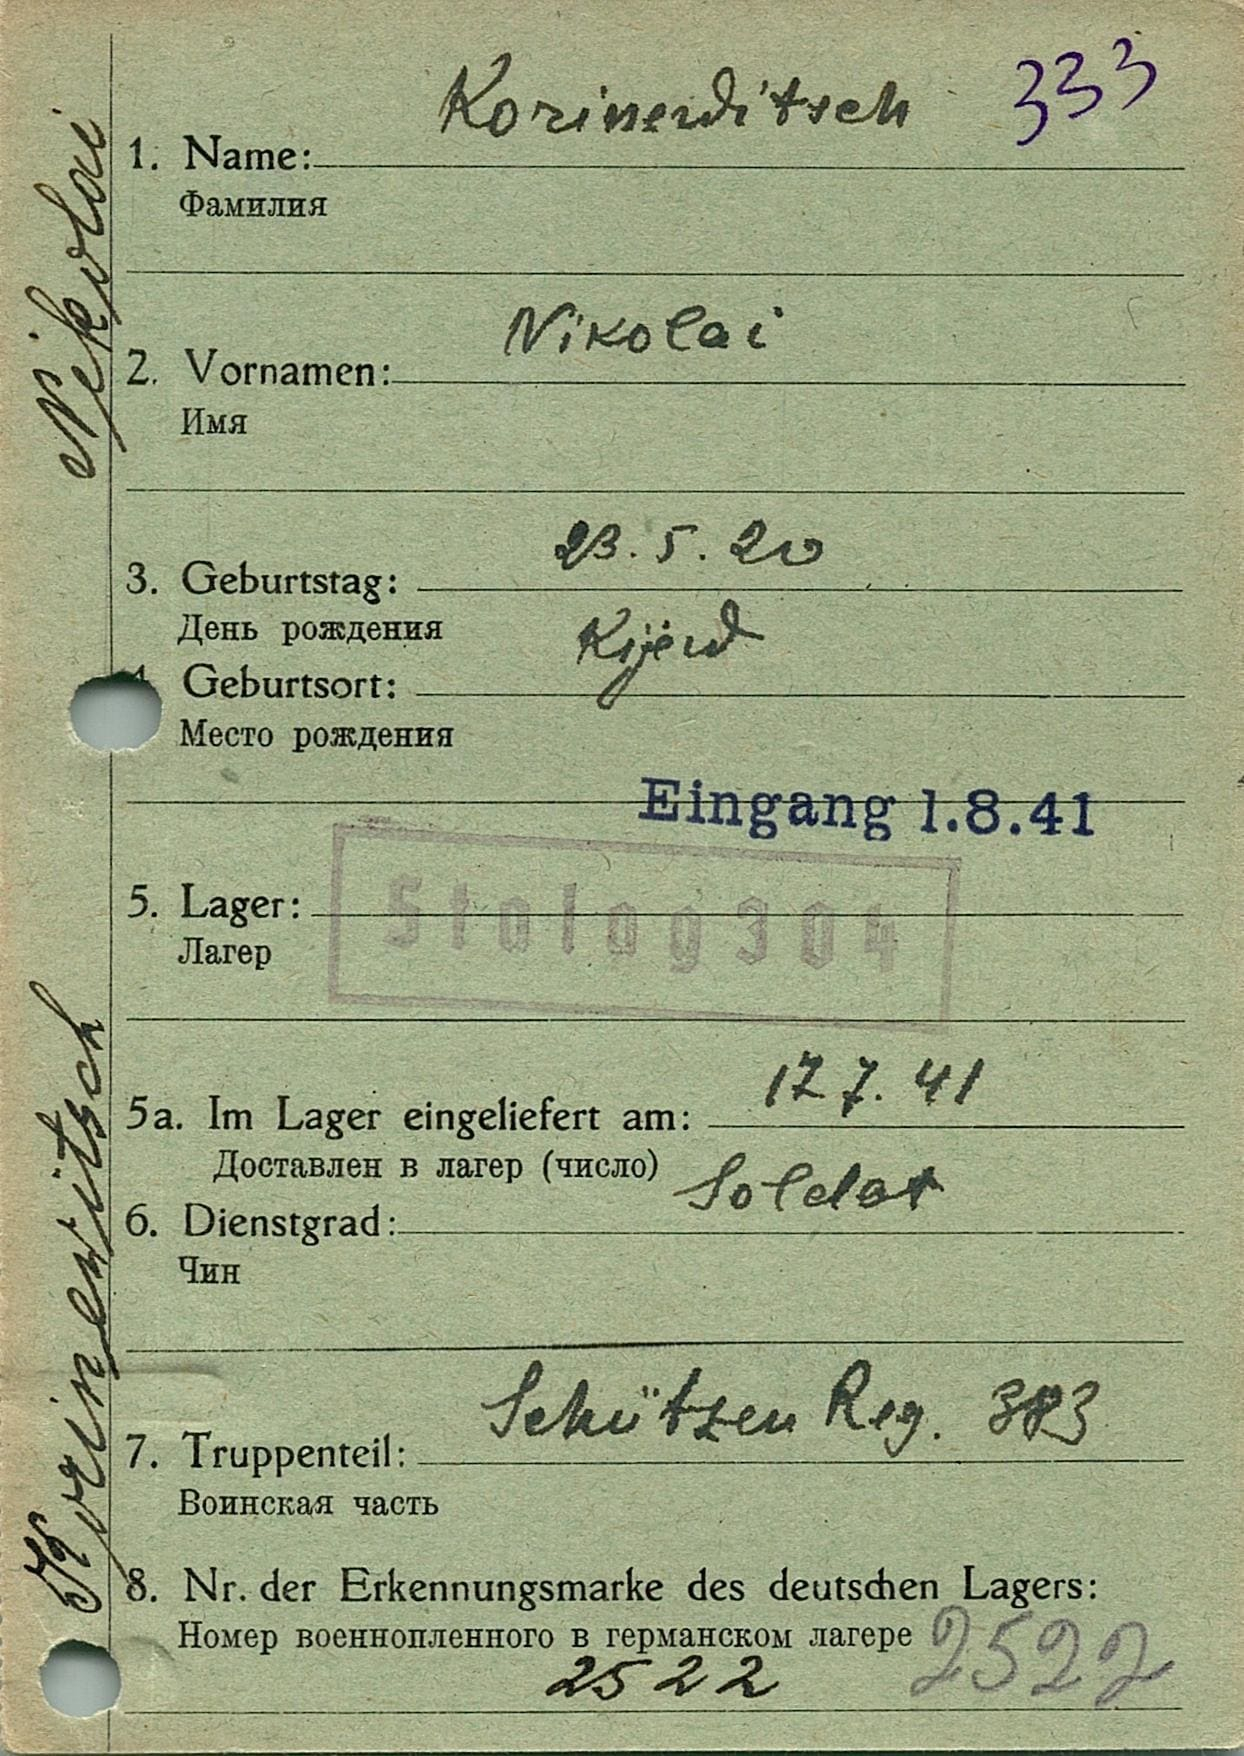 Korinewitsch 333
1. Name:
Фамилия
Nikolai
2. Vornamen:
Имя
23.5.20
3. Geburtstag:
День рождения
Kijew
4. Geburtsort:
Место рождения
Eingang 1.8.41
5. Lager: Stalag 304
Лагер
17 7. 41
5a. Im Lager eingeliefert am:
Доставлен в лагер (число)
Soldat
6. Dienstgrad:
Чин
Schützen Reg. 383
7. Truppenteil:
Воинская часть
8. Nr. der Erkennungsmarke des deutschen Lagers:
Номер военнопленного в германском лагере 2522
2522
Korinewitsch Nikolai